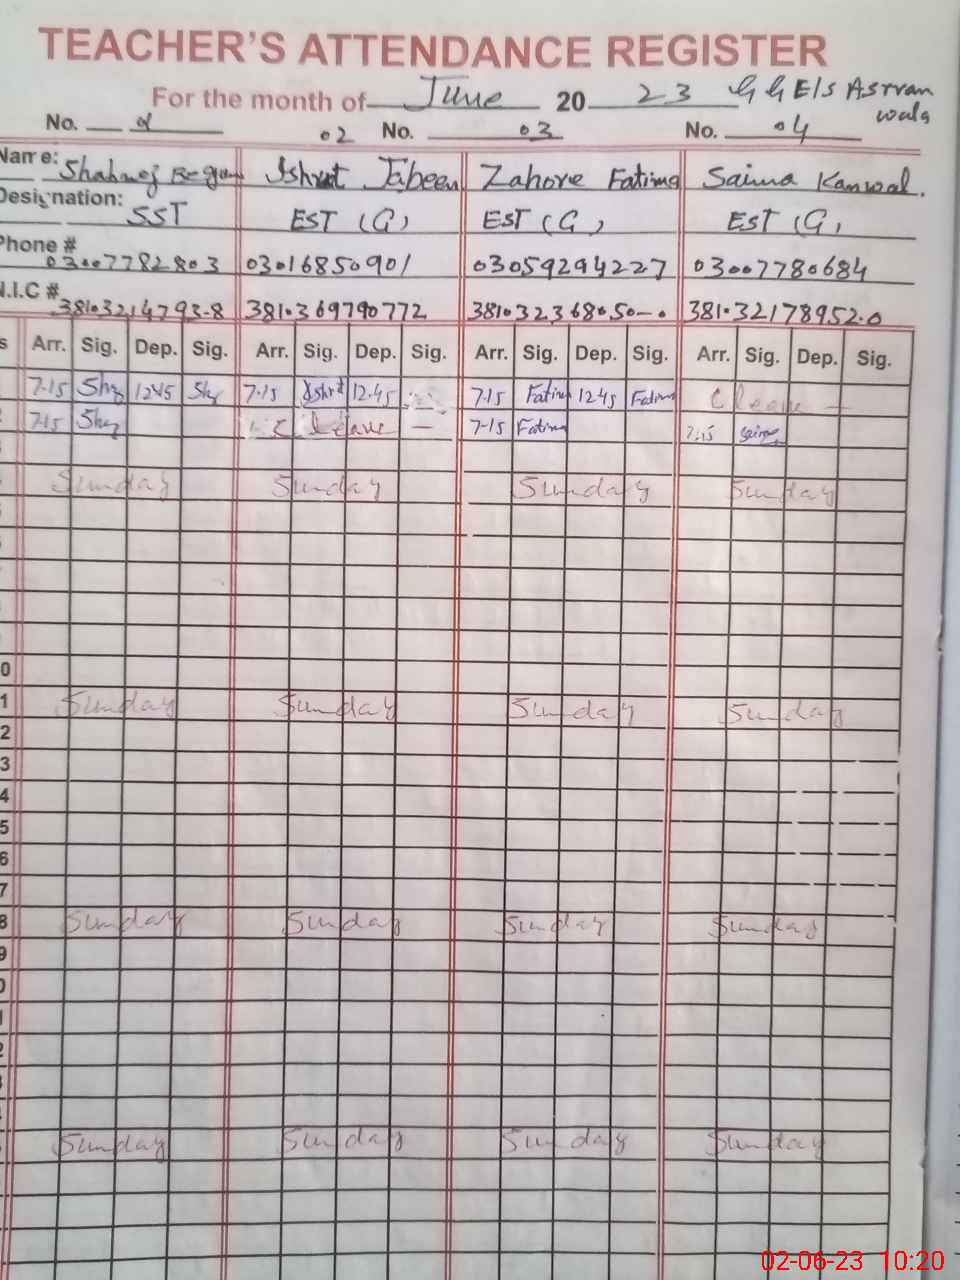 TEACHER'S ATTENDANCE REGISTER
For the month of June 20 23 G G E/S Asrran
wala
No. 02 No. 03 No. 04
Name: Shahnaz Begum Ishrat Jabeen Zahore Fatima Saima Kanwal.
Designation: SST EST (G) EST (G) EST (G)
Phone # 03007782803 03016850901 03059294227 03007780684
N.I.C # 38103214793-8 381.369790772 3810323 6805 0-0 381.32178952.0
s Arr. Sig. Dep. Sig. Arr. Sig. Dep. Sig. Arr. Sig. Dep. Sig. Arr. Sig. Dep. Sig.
7-15 Shz 1245 Shz 7-15 Ishrt 12.45 7-15 Fatima 1245 Fatima C leave —
7-15 Shz C leave — 7-15 Fatima 7:15 Saima
Sunday Sunday Sunday Sunday
0
1 Sunday Sunday Sunday Sunday
2
3
4
5
6
7
8 Sunday Sunday Sunday Sunday
9
0
1
2
3
Sunday Sunday Sunday Sunday
02-06-23 10:20